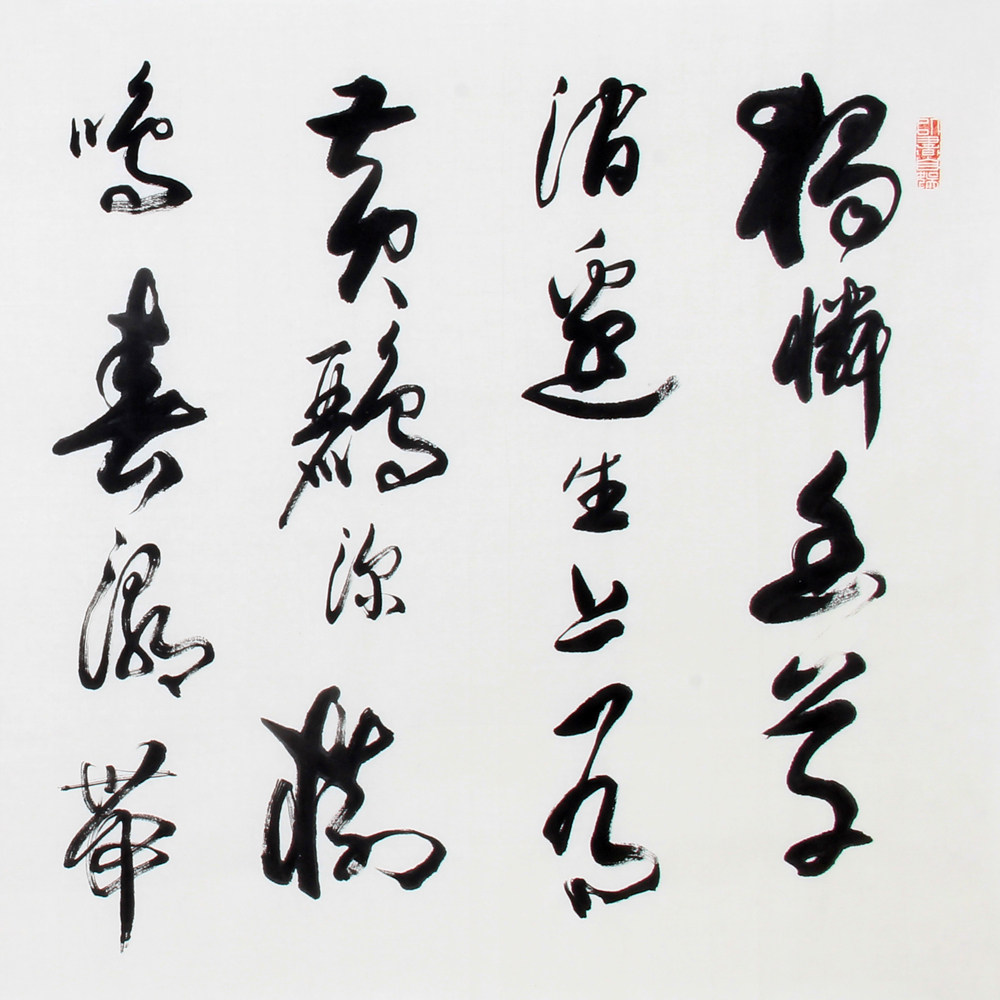 獨憐幽草
澗邊生上有
黃鸝深樹
鳴春潮帶